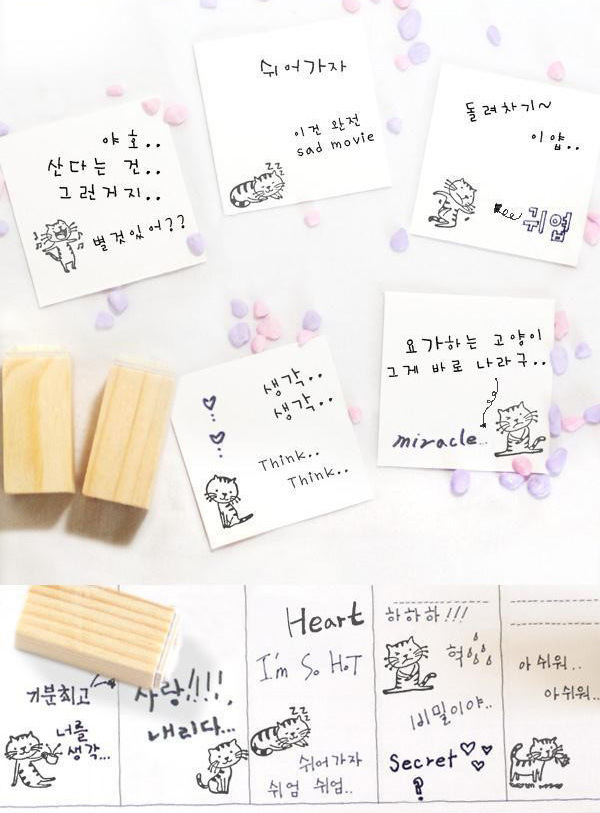 쉬어가자
이건 완전
sad movie
zz
z
돌려차기~
이얍..
귀엽
야호..
산다는 건..
그런거지..
별것있어??
요가하는 고양이
그게 바로 나라구..
miracle...
생각..
생각..
Think..
Think..
기분최고
너를
생각...
사랑!!!!,
내리다...
Heart
I'm So HoT
zz
z
쉬어가자
쉬엄 쉬엄..
하하하!!!
헉
비밀이야..
Secret
?
아 쉬워..
아쉬워..